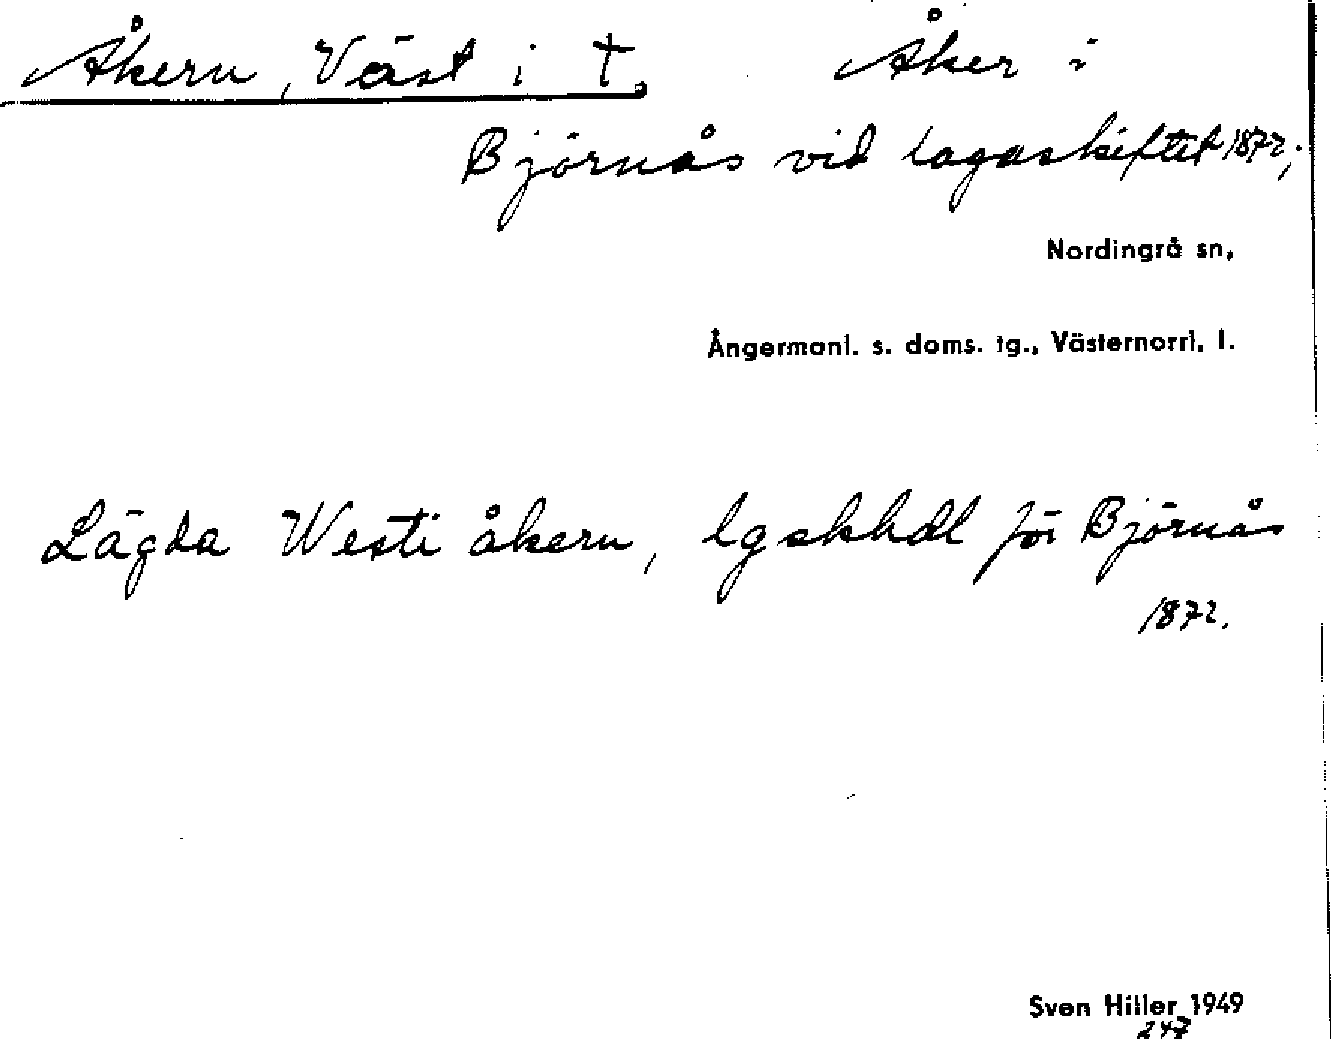 Åkern, Väst i †. Åker i
Björnås vid lagaskiftet 1872;
Nordingrå sn,
Ångermanl. s. doms. tg., Västernorrl. l.
Lägda Westi åkern, lgskhdl för Björnås
1872.
Sven Hiller 1949
247